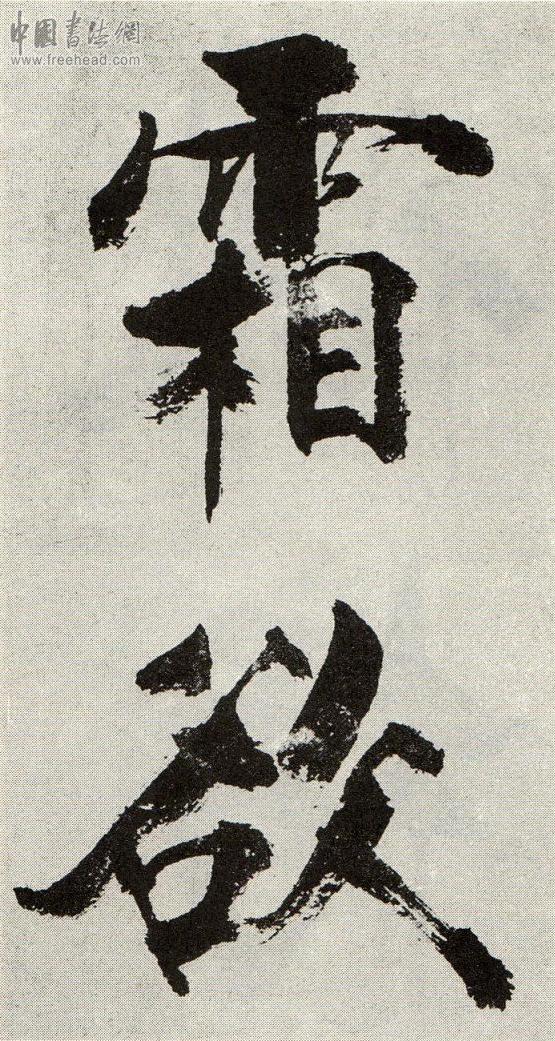 中国书法網
www.freehead.com
霜
欲